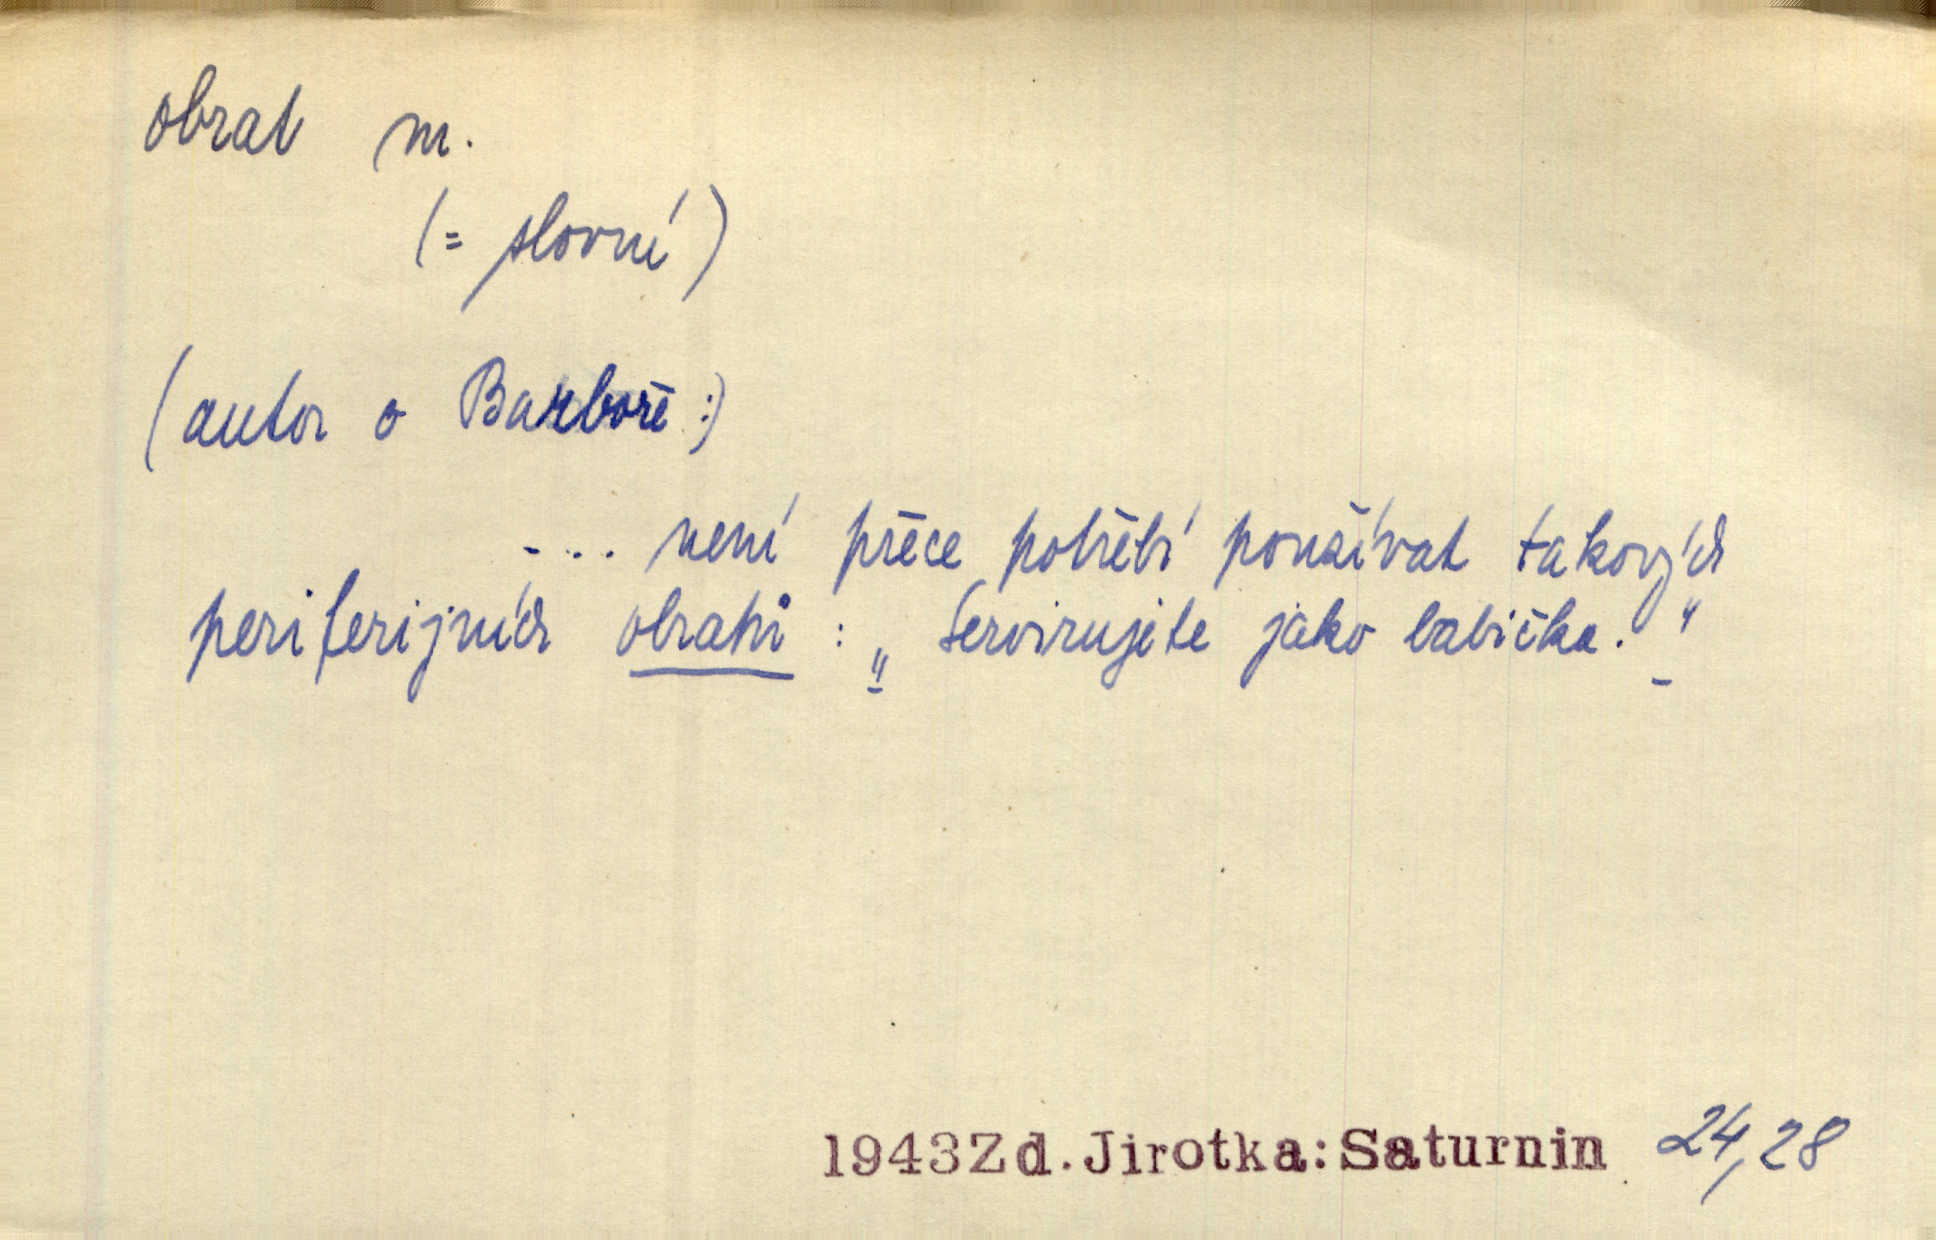 obrat m.
(= slovní)
(autor o Barboře:)
... není přece potřebí používat takových
periferijních obratů: „Servírujete jako babička."
1943 Zd. Jirotka: Saturnin 24,28